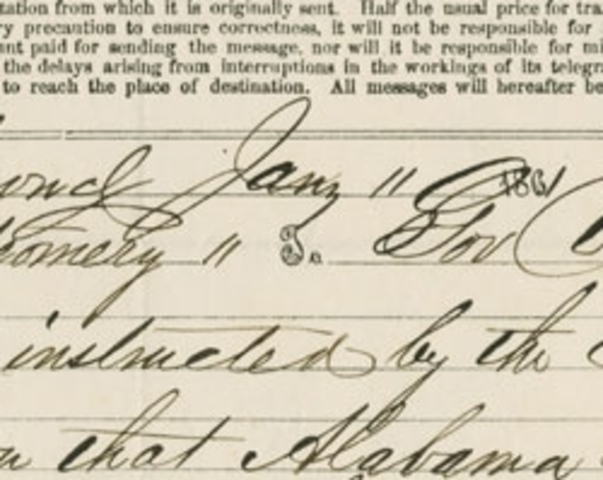 tation from which it is originally sent. Half the usual price for tra
ry precaution to ensure correctness, it will not be responsible for
nt paid for sending the message, nor will it be responsible for mi
the delays arising from interruptions in the workings of its telegr
to reach the place of destination. All messages will hereafter be
ond Jany " 1861
gomery " J. Gov
instructed by the
u that Alabama